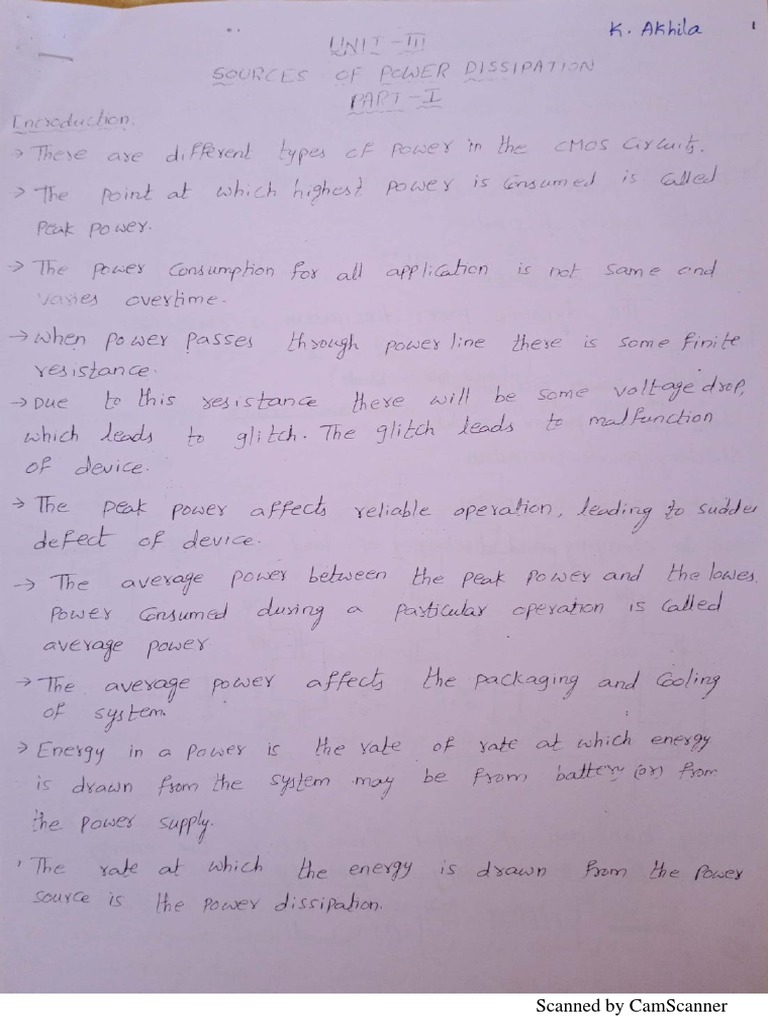 K. Akhila 1
UNIT-III
SOURCES OF POWER DISSIPATION
PART-I
Introduction:
→ There are different types of power in the CMOS Circuits.
→ The point at which highest power is Consumed is called
Peak power.
→ The power Consumption for all application is not same and
varies overtime.
→ when power passes through power line there is some finite
resistance.
→ Due to this resistance there will be some voltage drop,
which leads to glitch. The glitch leads to malfunction
of device.
→ The peak power affects reliable operation, leading to sudden
defect of device.
→ The average power between the peak power and the lowes
power Consumed during a particular operation is called
average power
→ The average power affects the packaging and Cooling
of system.
→ Energy in a power is the rate of rate at which energy
is drawn from the system may be from battery (or) from
the power supply.
' The rate at which the energy is drawn from the power
source is the power dissipation.
Scanned by CamScanner